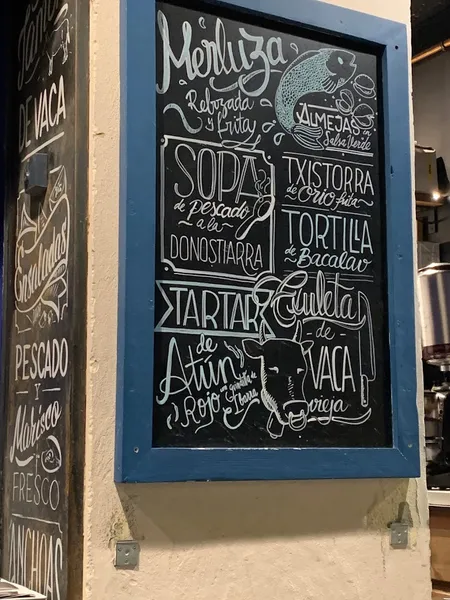 DE VACA
Ensaladas
PESCADO
Y
Marisco
FRESCO
ANCHOAS
Merluza
Rebozada
y frita
ALMEJAS en
Salsa Verde
SOPA
de pescado
a la
DONOSTIARRA
TXISTORRA
de Orio frita
TORTILLA
de Bacalao
TARTAR
de
Atún
Rojo con
guindilla de
Ibarra
Chuleta
de
VACA
vieja